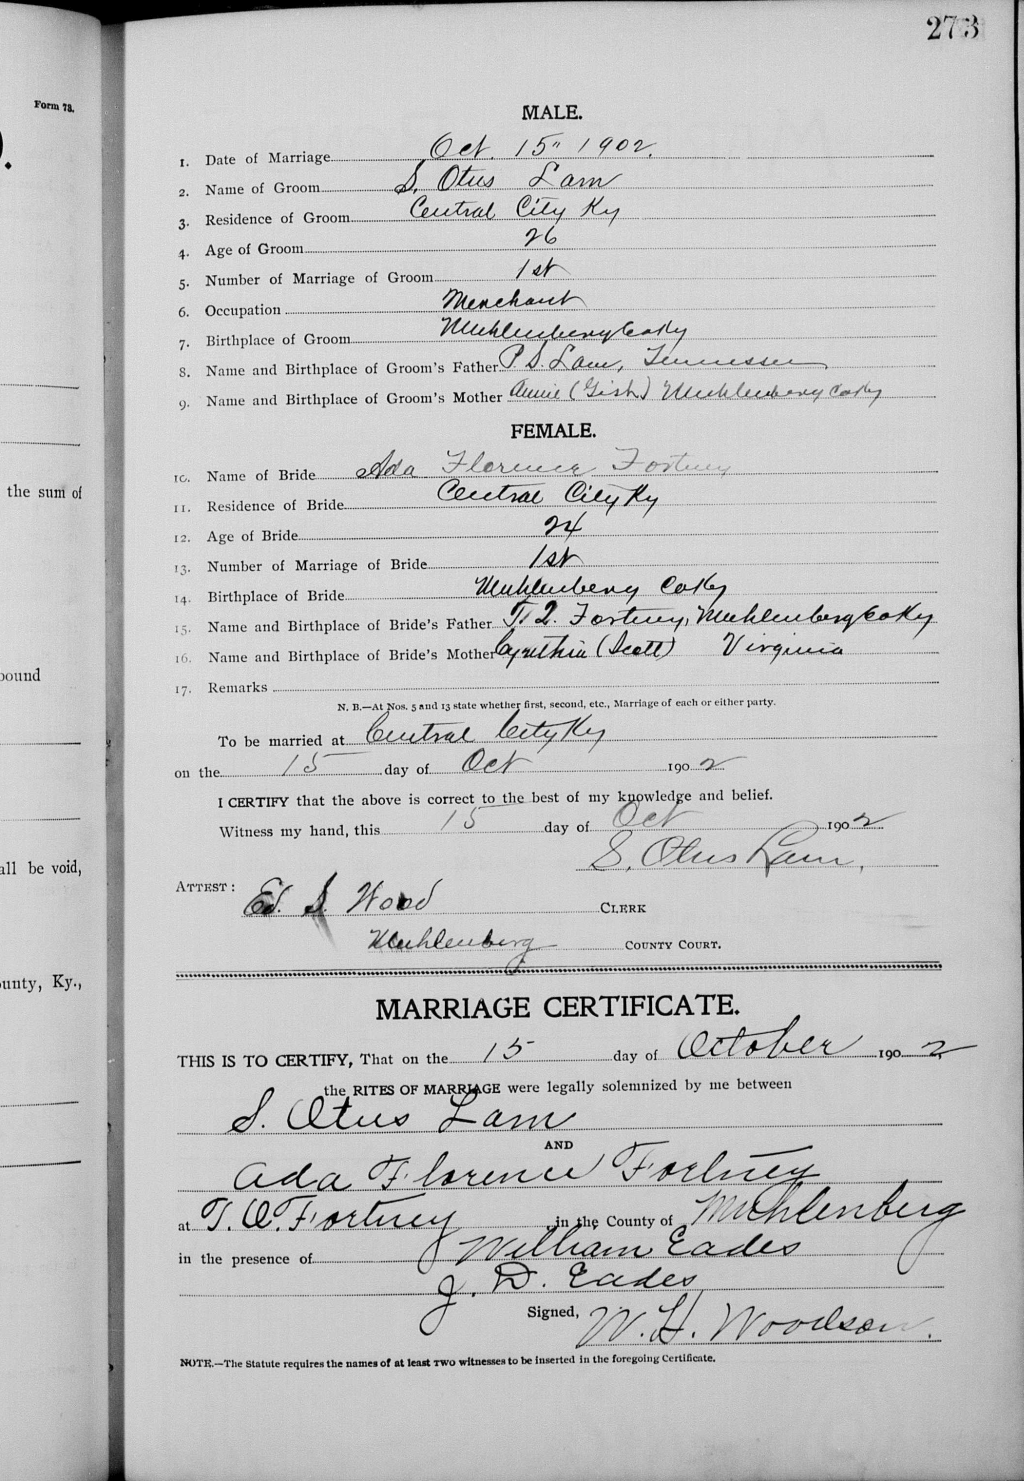 273
Form 78.
).
MALE.
1. Date of Marriage Oct. 15" 1902.
2. Name of Groom S. Otus Lam
3. Residence of Groom Central City Ky
4. Age of Groom 26
5. Number of Marriage of Groom 1st
6. Occupation Merchant
7. Birthplace of Groom Muhlenberg Co Ky
8. Name and Birthplace of Groom's Father P. S. Lam, Tennessee
9. Name and Birthplace of Groom's Mother Annie (Gish) Muhlenberg Co Ky
FEMALE.
10. Name of Bride Ada Florence Fortney
the sum of
11. Residence of Bride Central City Ky
12. Age of Bride 24
13. Number of Marriage of Bride 1st
14. Birthplace of Bride Muhlenberg Co Ky
15. Name and Birthplace of Bride's Father T. Q. Fortney, Muhlenberg Co Ky
16. Name and Birthplace of Bride's Mother Cynthia (Scott) Virginia
ound
17. Remarks
N. B.—At Nos. 5 and 13 state whether first, second, etc., Marriage of each or either party.
To be married at Central City Ky
on the 15 day of Oct 1902
I CERTIFY that the above is correct to the best of my knowledge and belief.
Witness my hand, this 15 day of Oct 1902
S. Otus Lam.
all be void,
ATTEST:
Ed. S. Wood CLERK
Muhlenberg COUNTY COURT.
unty, Ky.,
MARRIAGE CERTIFICATE.
THIS IS TO CERTIFY, That on the 15 day of October 1902
the RITES OF MARRIAGE were legally solemnized by me between
S. Otus Lam
AND
Ada Florence Fortney
at T. Q. Fortney in the County of Muhlenberg
in the presence of William Eades
J. D. Eades
Signed, W. H. Woodson.
NOTE.—The Statute requires the names of at least TWO witnesses to be inserted in the foregoing Certificate.